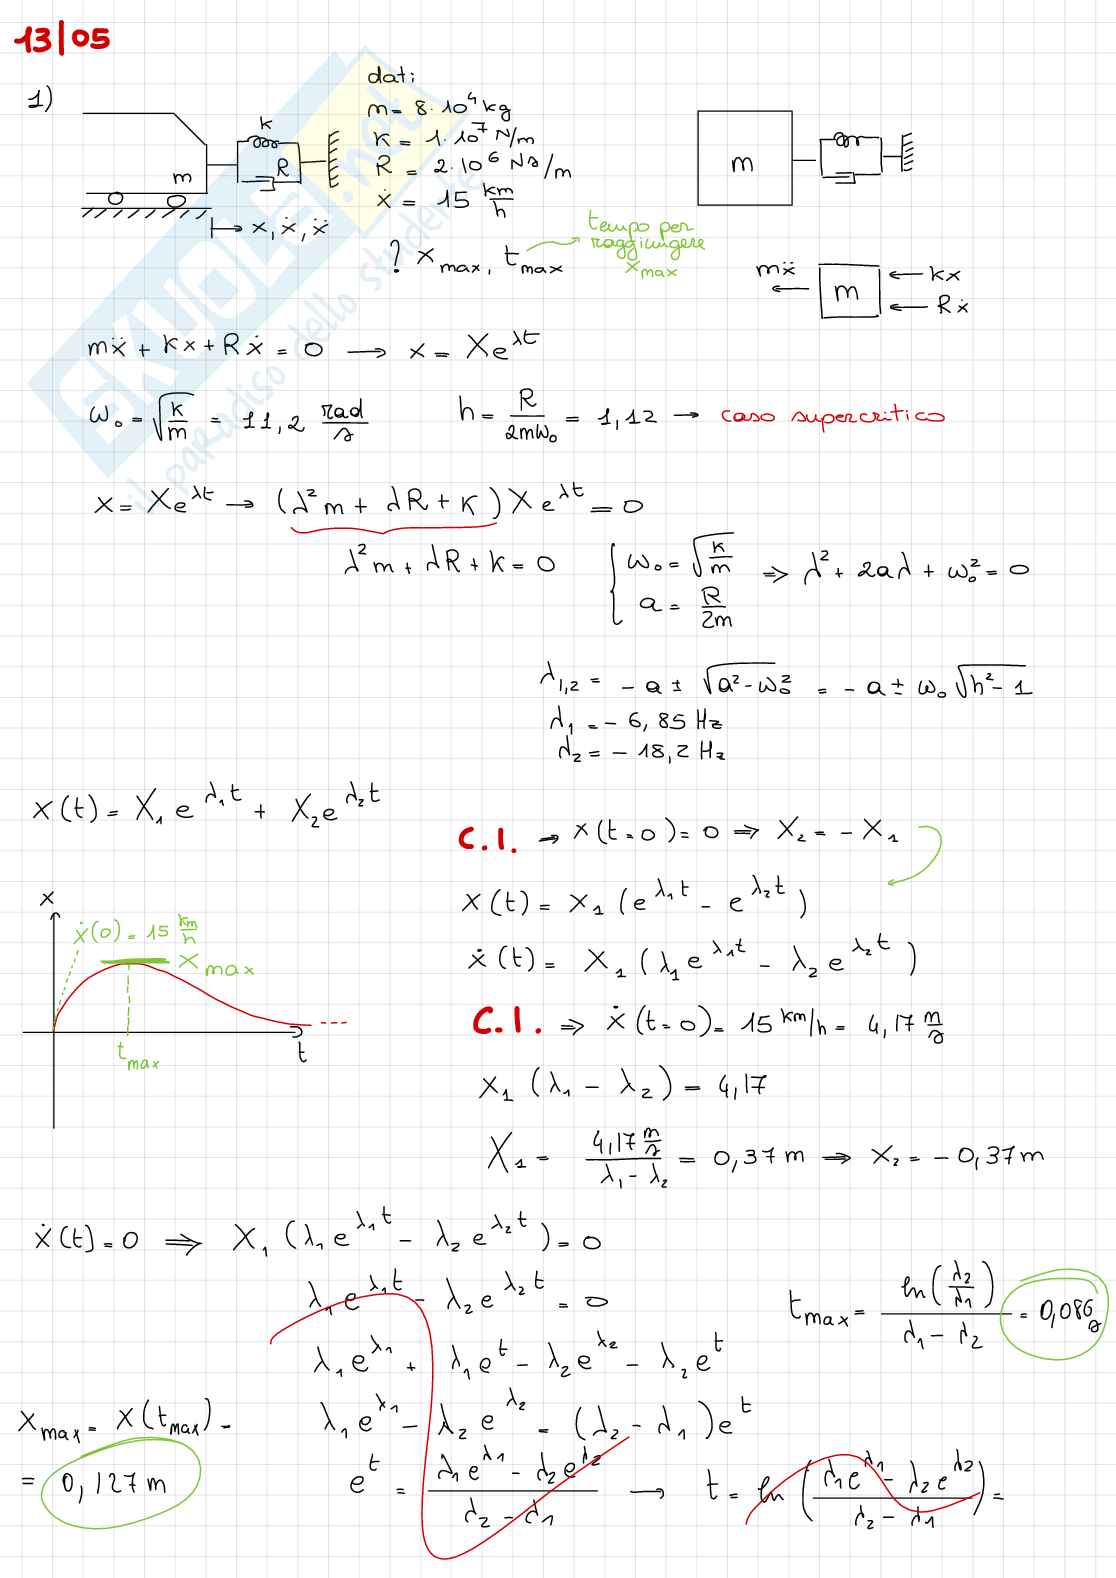 13/05
1)
dati:
m = 8·10⁴ kg
K = 1·10⁷ N/m
R = 2·10⁶ Ns/m
ẋ = 15 km/h
k
R
m
x, ẋ, ẍ
? x_max, t_max
tempo per
raggiungere
x_max
m
mẍ
m
kx
Rẋ
mẍ + Kx + Rẋ = 0 → x = Xe^{λt}
ω₀ = √(k/m) = 11,2 rad/s
h = R/(2mω₀) = 1,12 → caso supercritico
x = Xe^{λt} → (λ²m + λR + K) X e^{λt} = 0
λ²m + λR + K = 0
{ ω₀ = √(K/m)
a = R/2m
⇒ λ² + 2aλ + ω₀² = 0
λ₁,₂ = -a ± √(a² - ω₀²) = -a ± ω₀ √(h² - 1)
λ₁ = - 6,85 Hz
λ₂ = - 18,2 Hz
x(t) = X₁ e^{λ₁t} + X₂ e^{λ₂t}
C.I. → x(t=0) = 0 ⇒ X₂ = - X₁
x(t) = X₁ (e^{λ₁t} - e^{λ₂t})
ẋ(t) = X₁ (λ₁ e^{λ₁t} - λ₂ e^{λ₂t})
C.I. ⇒ ẋ(t=0) = 15 km/h = 4,17 m/s
X₁ (λ₁ - λ₂) = 4,17
X₁ = (4,17 m/s)/(λ₁ - λ₂) = 0,37 m ⇒ X₂ = - 0,37 m
x
ẋ(0) = 15 km/h
x_max
t_max
t
ẋ(t) = 0 ⇒ X₁ (λ₁ e^{λ₁t} - λ₂ e^{λ₂t}) = 0
λ₁ e^{λ₁t} - λ₂ e^{λ₂t} = 0
t_max = ln(λ₂/λ₁)/(λ₁ - λ₂) = 0,086 s
λ₁ e^{λ₁} + λ₁ e^t - λ₂ e^{λ₂} - λ₂ e^t
λ₁ e^{λ₁} - λ₂ e^{λ₂} = (λ₂ - λ₁) e^t
x_max = x(t_max) =
= 0,127 m
e^t = (λ₁ e^{λ₁} - λ₂ e^{λ₂})/(λ₂ - λ₁) → t = ln((λ₁ e^{λ₁} - λ₂ e^{λ₂})/(λ₂ - λ₁)) =
SKUOLA.net
il paradiso dello studente